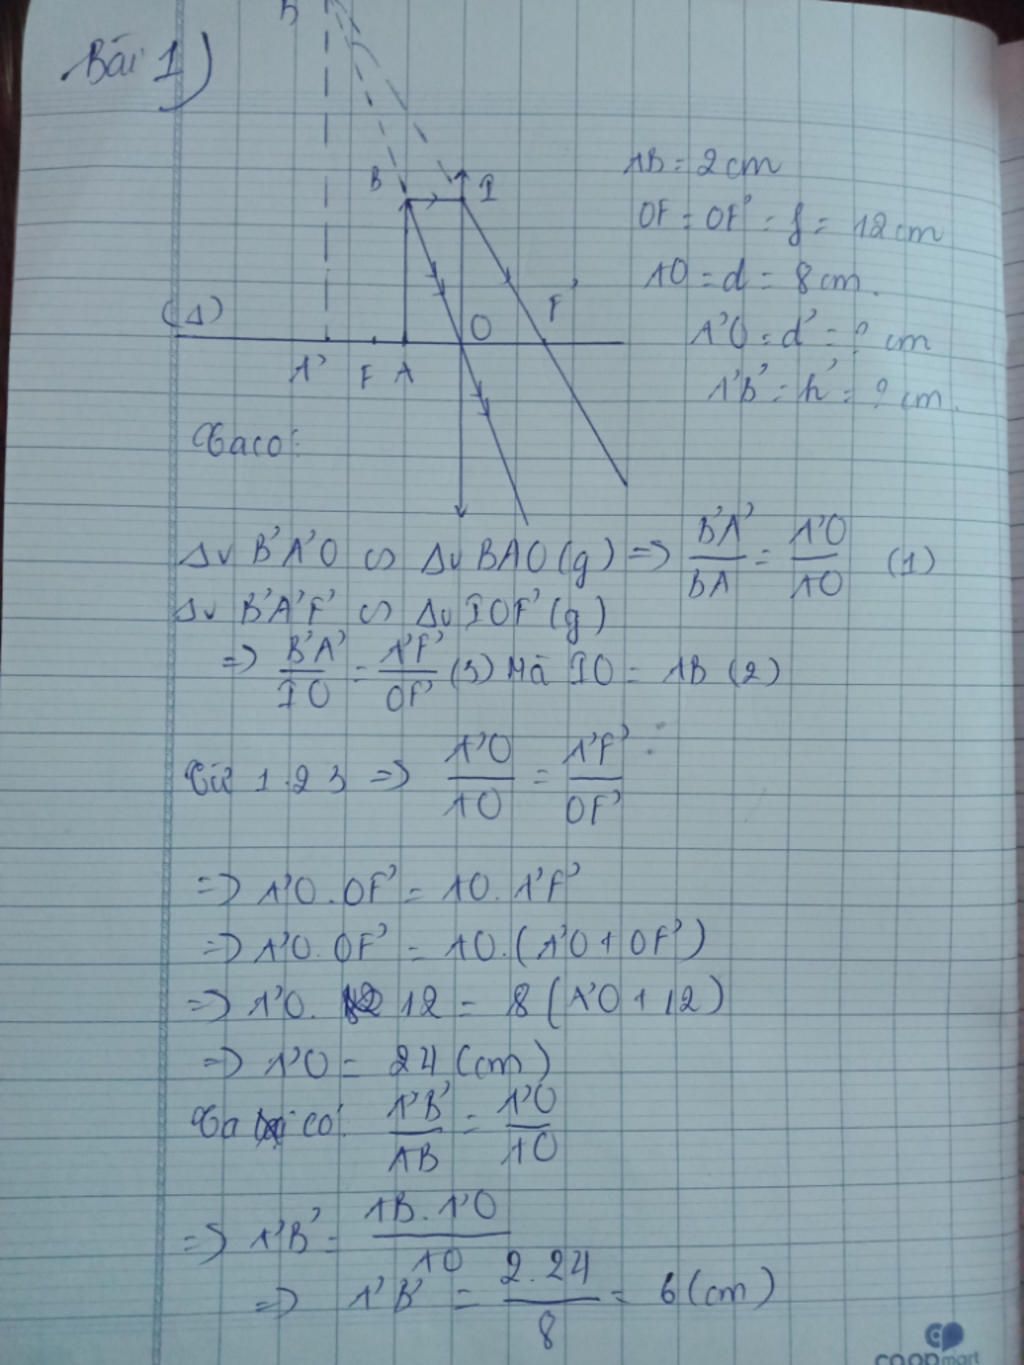 Bài 1)
B
B
I
AB = 2 cm
OF = OF' = f = 12 cm
AO = d = 8 cm.
A'O = d' = ? cm
A'B' = h' = ? cm.
(Δ)
O
F'
A'
F
A
Ta có:
Δv B'A'O ∽ Δv BAO (g) => B'A'/BA = A'O/AO (1)
Δv B'A'F' ∽ Δv IOF' (g)
=> B'A'/IO = A'F'/OF' (3) Mà IO = AB (2)
Từ 1.2 3 => A'O/AO = A'F'/OF'
=> A'O.OF' = AO.A'F'
=> A'O.OF' = AO.(A'O + OF')
=> A'O. 12 = 8 (A'O + 12)
=> A'O = 24 (cm)
Ta có: A'B'/AB = A'O/AO
=> A'B' = AB.A'O/AO
=> A'B' = 2.24/8 = 6 (cm)
co.opmart